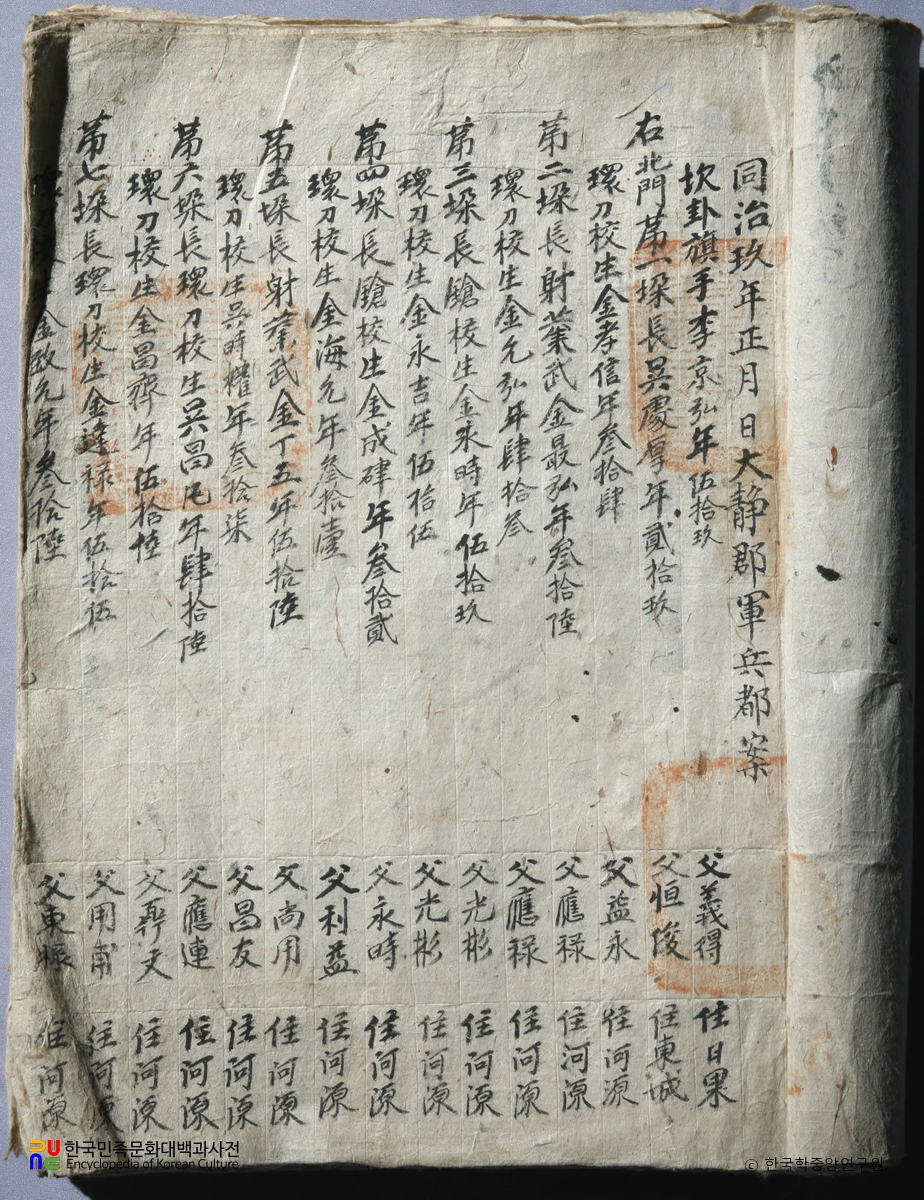 同治玖年正月 日大静郡軍兵都案
坎卦旗手李京弘年伍拾玖 父義得 住日果
右北門第一垛長吳慶厚年貳拾玖 父恒俊 住東城
環刀校生金孝信年叁拾肆 父益永 住河源
第二垛長射業武金最弘年叁拾陸 父應祿 住河源
環刀校生金允弘年肆拾叁 父應祿 住河源
第三垛長鎗校生金永時年伍拾玖 父光彬 住河源
環刀校生金永吉年伍拾伍 父光彬 住河源
第四垛長鎗校生金成肆年叁拾貳 父永時 住河源
環刀校生金海允年叁拾壹 父利益 住河源
第五垛長射業武金丁五年伍拾陸 父尚用 住河源
環刀校生吳時權年叁拾柒 父昌友 住河源
第六垛長環刀校生吳昌凡年肆拾陸 父應連 住河源
環刀校生金昌齊年伍拾陸 父 住河源
第七垛長環刀校生金逢祿年伍拾伍 父用甫 住河源
金政允年叁拾陸 父東祿 住河源
한국민족문화대백과사전
Encyclopedia of Korean Culture
© 한국학중앙연구원